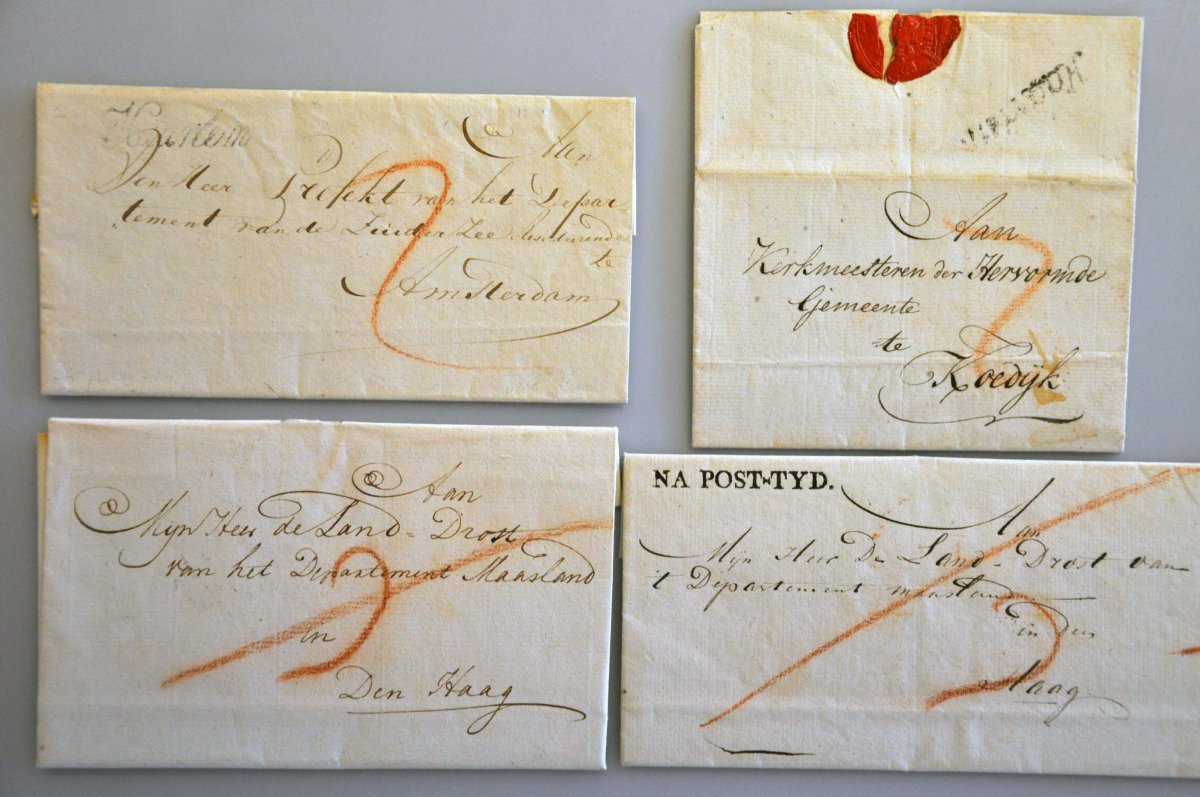 Haarlem
Aan
Den Heer Prefekt van het Depar-
tement van de Zuider Zee
te
Amsterdam
2
Aan
Kerkmeesteren der Hervormde
Gemeente
te
Koedijk
Aan
Mijn Heer de Land-Drost
van het Departement Maasland
in
Den Haag
3
NA POST-TYD.
Aan
Mijn Heer De Land-Drost van
't Departement maasland
in den
Haag